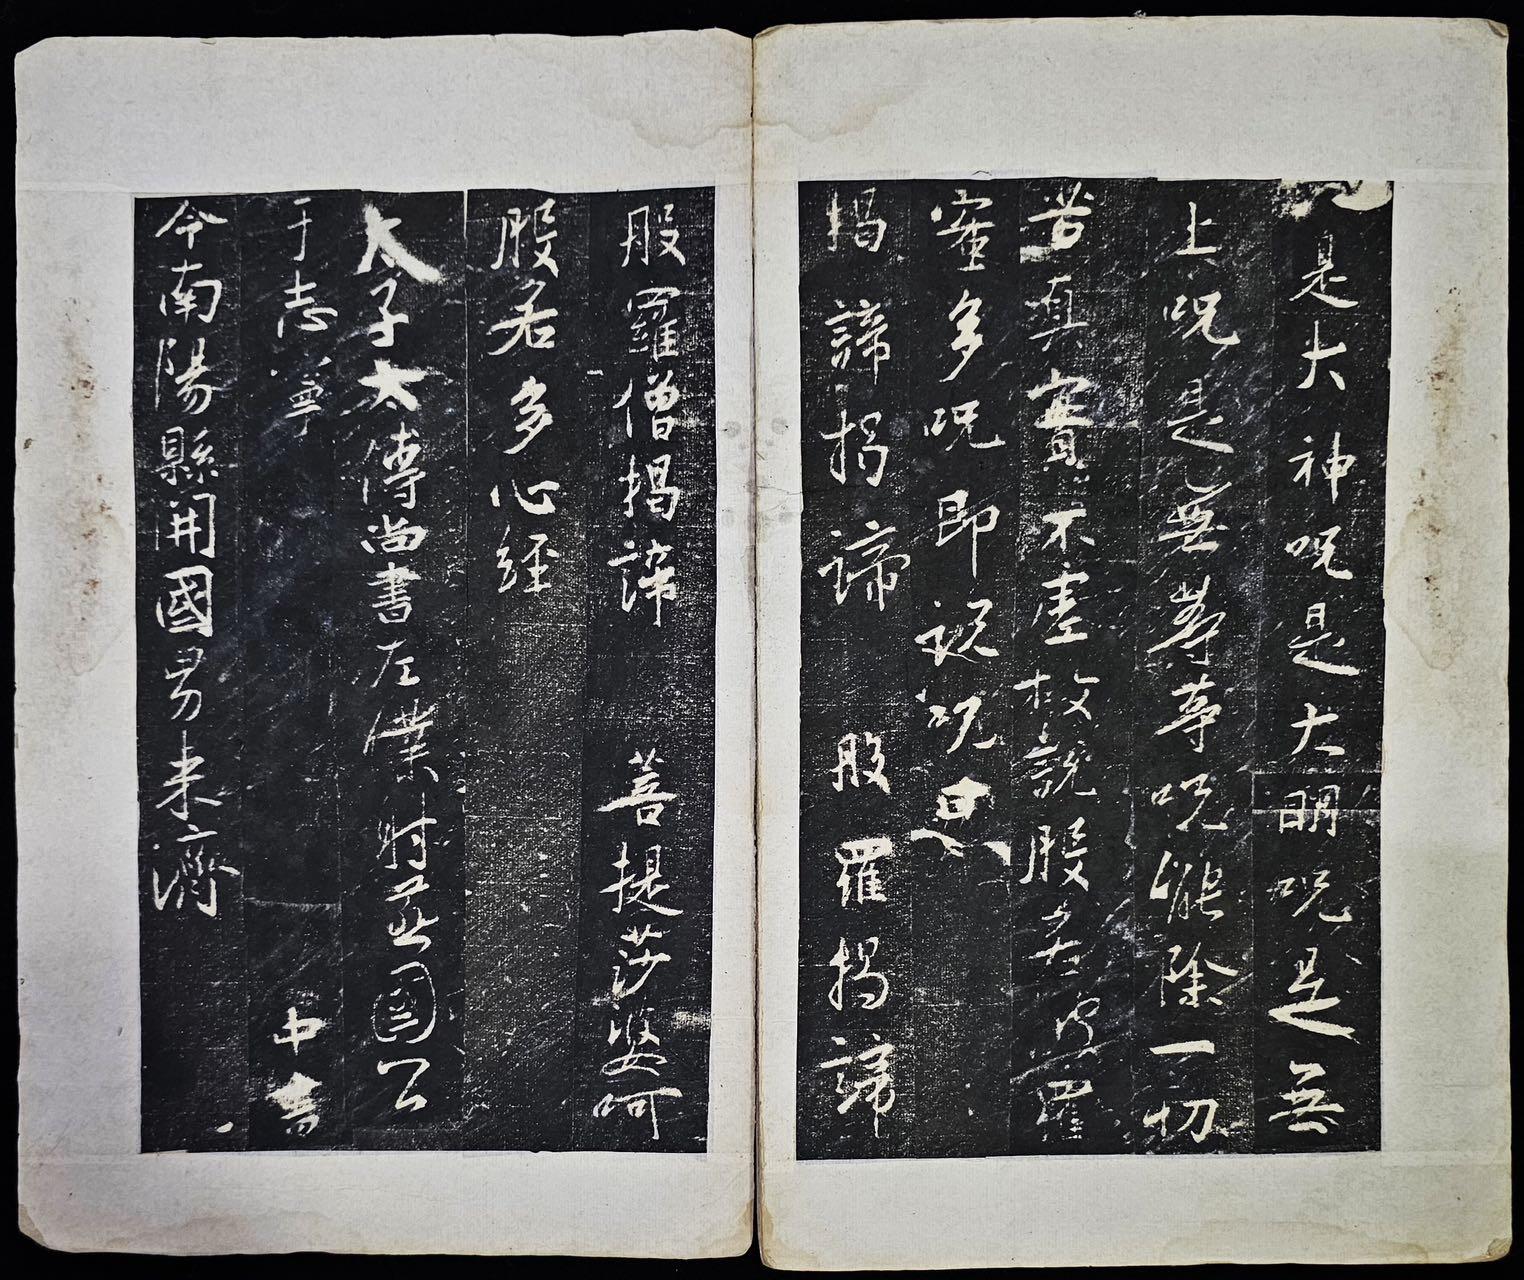 是大神呪是大明呪是無
上呪是無等等呪能除一切
苦真實不虛故說般若波羅
蜜多呪即說呪曰
揭諦揭諦　般羅揭諦
般羅僧揭諦　菩提莎婆呵
般若多心經
太子太傅尚書左僕射燕國公
于志寧　中書
令南陽縣開國男來濟